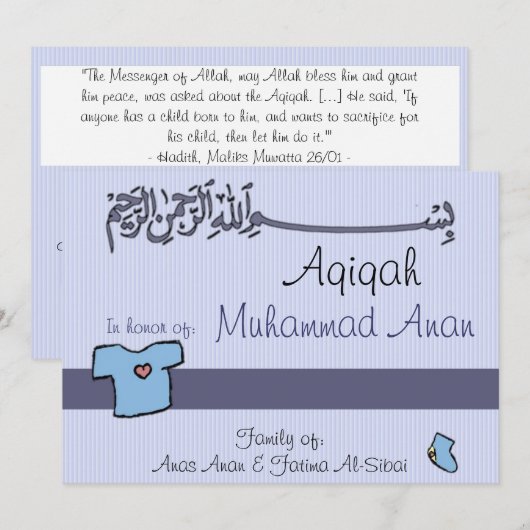 "The Messenger of Allah, may Allah bless him and grant
him peace, was asked about the Aqiqah. [...] He said, 'If
anyone has a child born to him, and wants to sacrifice for
his child, then let him do it.'"
- Hadith, Maliks Muwatta 26/01 -
بِسْمِ اللهِ الرَّحْمٰنِ الرَّحِيْمِ
Aqiqah
In honor of: Muhammad Anan
Family of:
Anas Anan & Fatima Al-Sibai